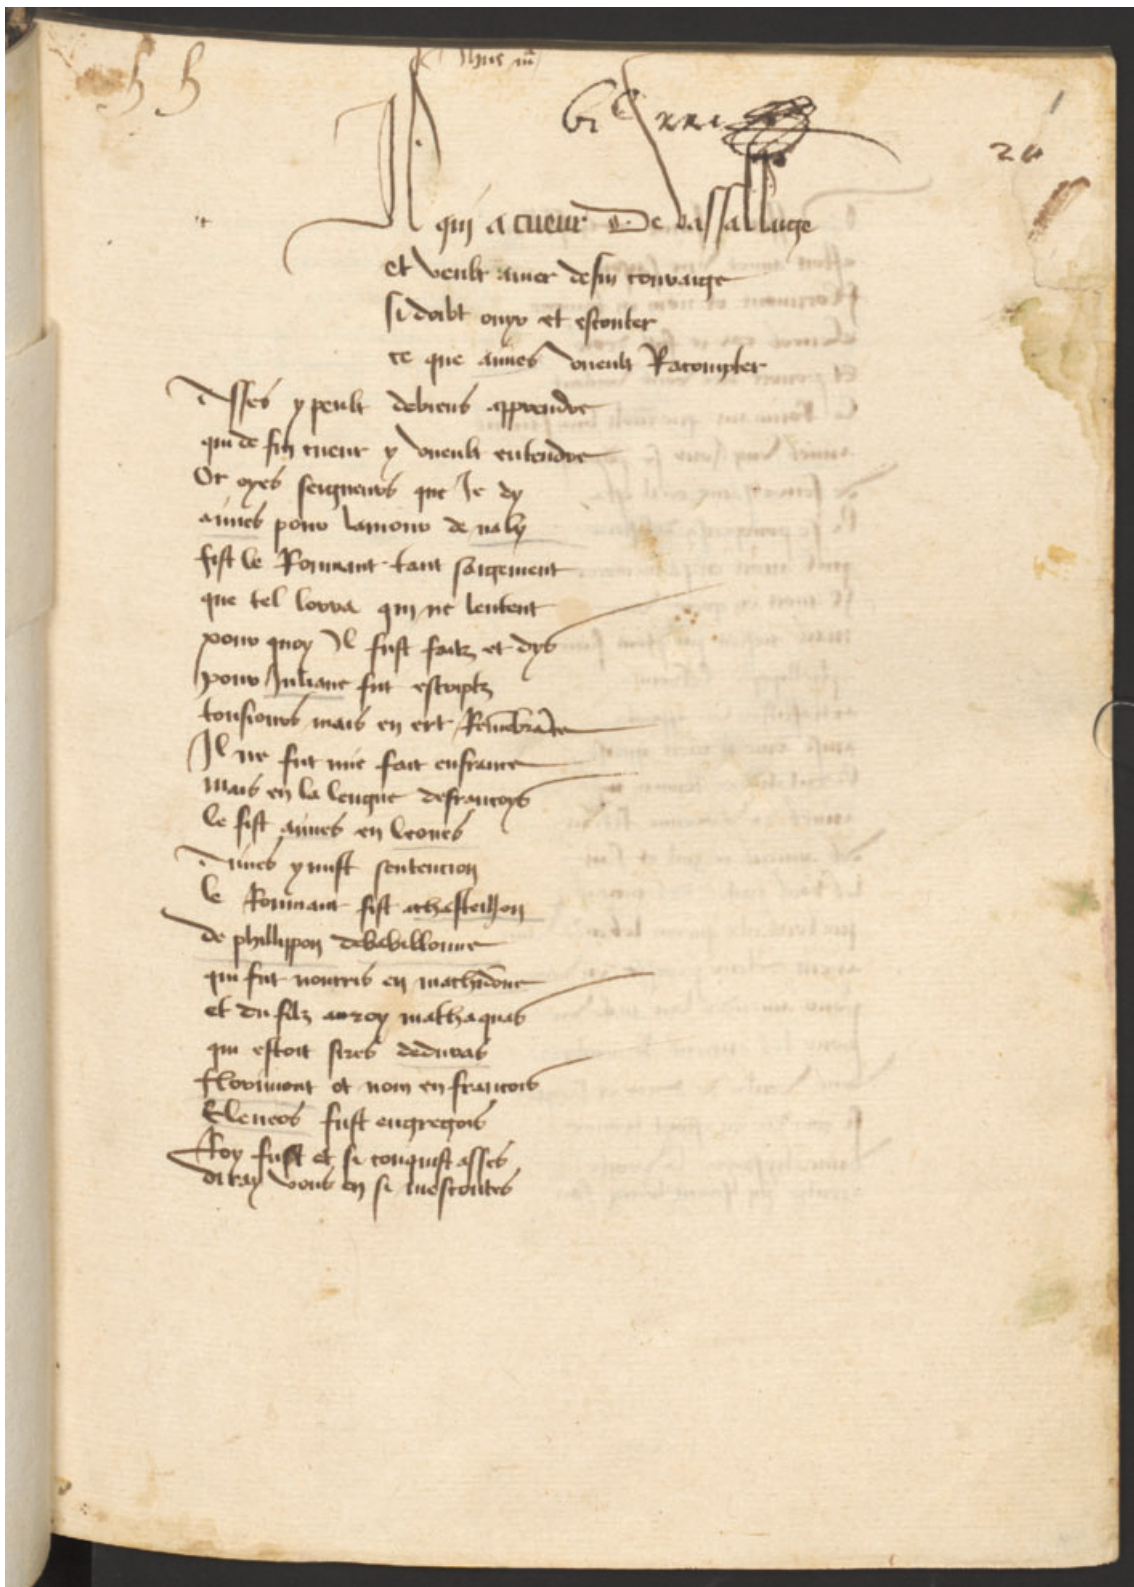 Jhus m̃
h h
bi c xxi
20
1
Il qui a cueur De vassallaige
et veult amer de fin couraige
si doibt ouyr et escouter
ce que aimes voeult Racompter
Asses y peult de biens apprendre
qui de fin cueur y voeult entendre
Or oyes seigneurs que Je dy
aimes pour lamour de naly
fist le Rommant tant saigement
que tel lorra qui ne lentent
pour quoy Jl fust faitz et dys
pour Juliane fut escriptz
tousiours mais en ert Remēbrāce
Il ne fut mie fait enfrance
mais en la lengue defrancoys
le fist aimes en leones
Aimes y mist sentencion
le Rommant fist achasteillon
De phillippon debabillonne
qui fut nourris en machidōne
et du filz au roy mathaquas
qui estoit sires deduras
florimont ot nom en francois
Eleneos fust en gregois
Roy fust et si conquist asses
diray vous en si mescoutes